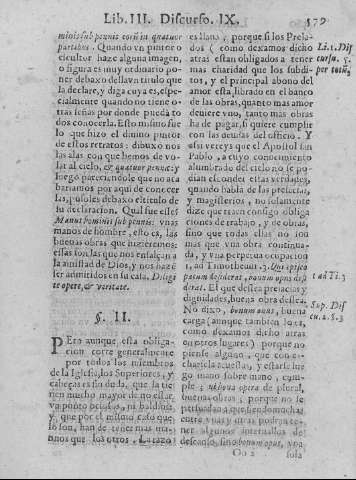 Lib. III. Discurso. IX. 579
minis sub pennis eorũ in quatuor
partibus. Quando vn pintor o
escultor haze alguna imagen,
o figura es muy ordinario poner
debaxo della vn titulo que
la declare, y diga cuya es, especialmente
quando no tiene otras
señas por donde pueda todos
conocerla. Esto mismo fue
lo que hizo el diuino pintor
de estos retratos: dibuxo nos
las alas con que hemos de volar
al cielo, & quatuor pennæ: y
luego pareciendole que no acabariamos
por aqui de conocerlas,
pusoles debaxo el titulo de
su declaracion. Qual fue este?
Manus hominis sub pennis: vnas
manos de hombre, esto es, las
buenas obras que hizieremos:
essas son las que nos enlaçan a
la amistad de Dios, y nos hazẽ
ser admitidos en su casa.
opere, & veritate.
§. II.
PEro aunque esta obligacion
corre generalmente
por todos los miembros
de la Iglesia, los Superiores, y
cabeças es sin duda, que la tienen
mucho mayor de no estar
vn punto ociosos, ni baldios,
y que por el mismo caso que
lo son, han de tener mas manos
que los otros. La razõ
es llana; porque si los Prelados
(como dexamos dicho
atras estan obligados a tener
mas charidad que los subditos,
y el principal abono del
amor esta librado en el banco
de las obras, quanto mas amor
deuiere vno, tanto mas obras
ha de pagar, si quiere cumplir
con las deudas del officio. Y
assi vereys que el Apostol san
Pablo, a cuyo conocimiento
alumbrado del cielo no se podian
esconder estas verdades,
quando habla de las prelacias,
y magisterios, no solamente
dize que traen consigo obligaciones
de trabajo, y de obras,
sino que todas ellas no son
mas que vna obra continuada,
y vna perpetua ocupacion
1. ad Timotheum 3. Qui episcopatum
desiderat, bonum opus desiderat.
El que dessea prelacias y
dignidades, buena obra dessea.
No dixo, bonum onus, buena
carga (aunque tambien lo es,
como dexamos dicho atras
en otros lugares) porque no
piense alguno, que con
y estarse luego
mano sobre mano, cumple;
ni bona opera de plural,
buenas obras, porque no se
persuada que siendo muchas
entre vnas y otras podra tener
algunos interuallos de
descanso, sino bonum opus, vna
Oo 2 sola
Li. 1. Dis
curso. 5.
per totũ.
1 ad Ti. 3
Sup. Dis
cu. 2. §. 3